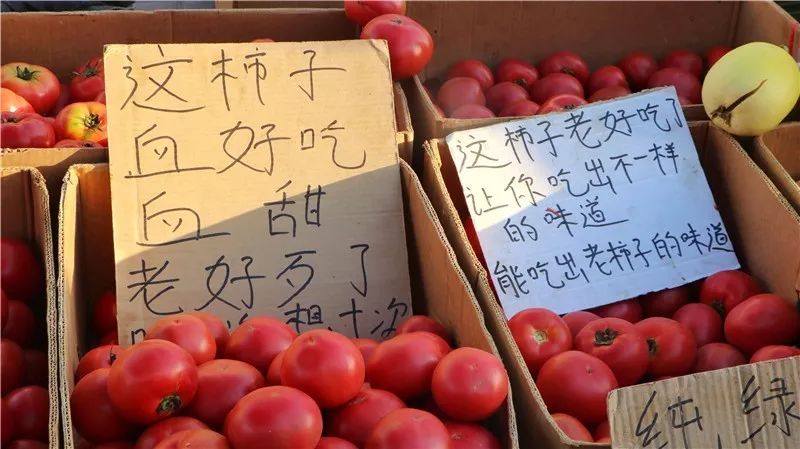 这柿子
血好吃
血甜
老好歹了
想十次
这柿子老好吃了
让你吃出不一样
的味道
能吃出老柿子的味道
纯，绿